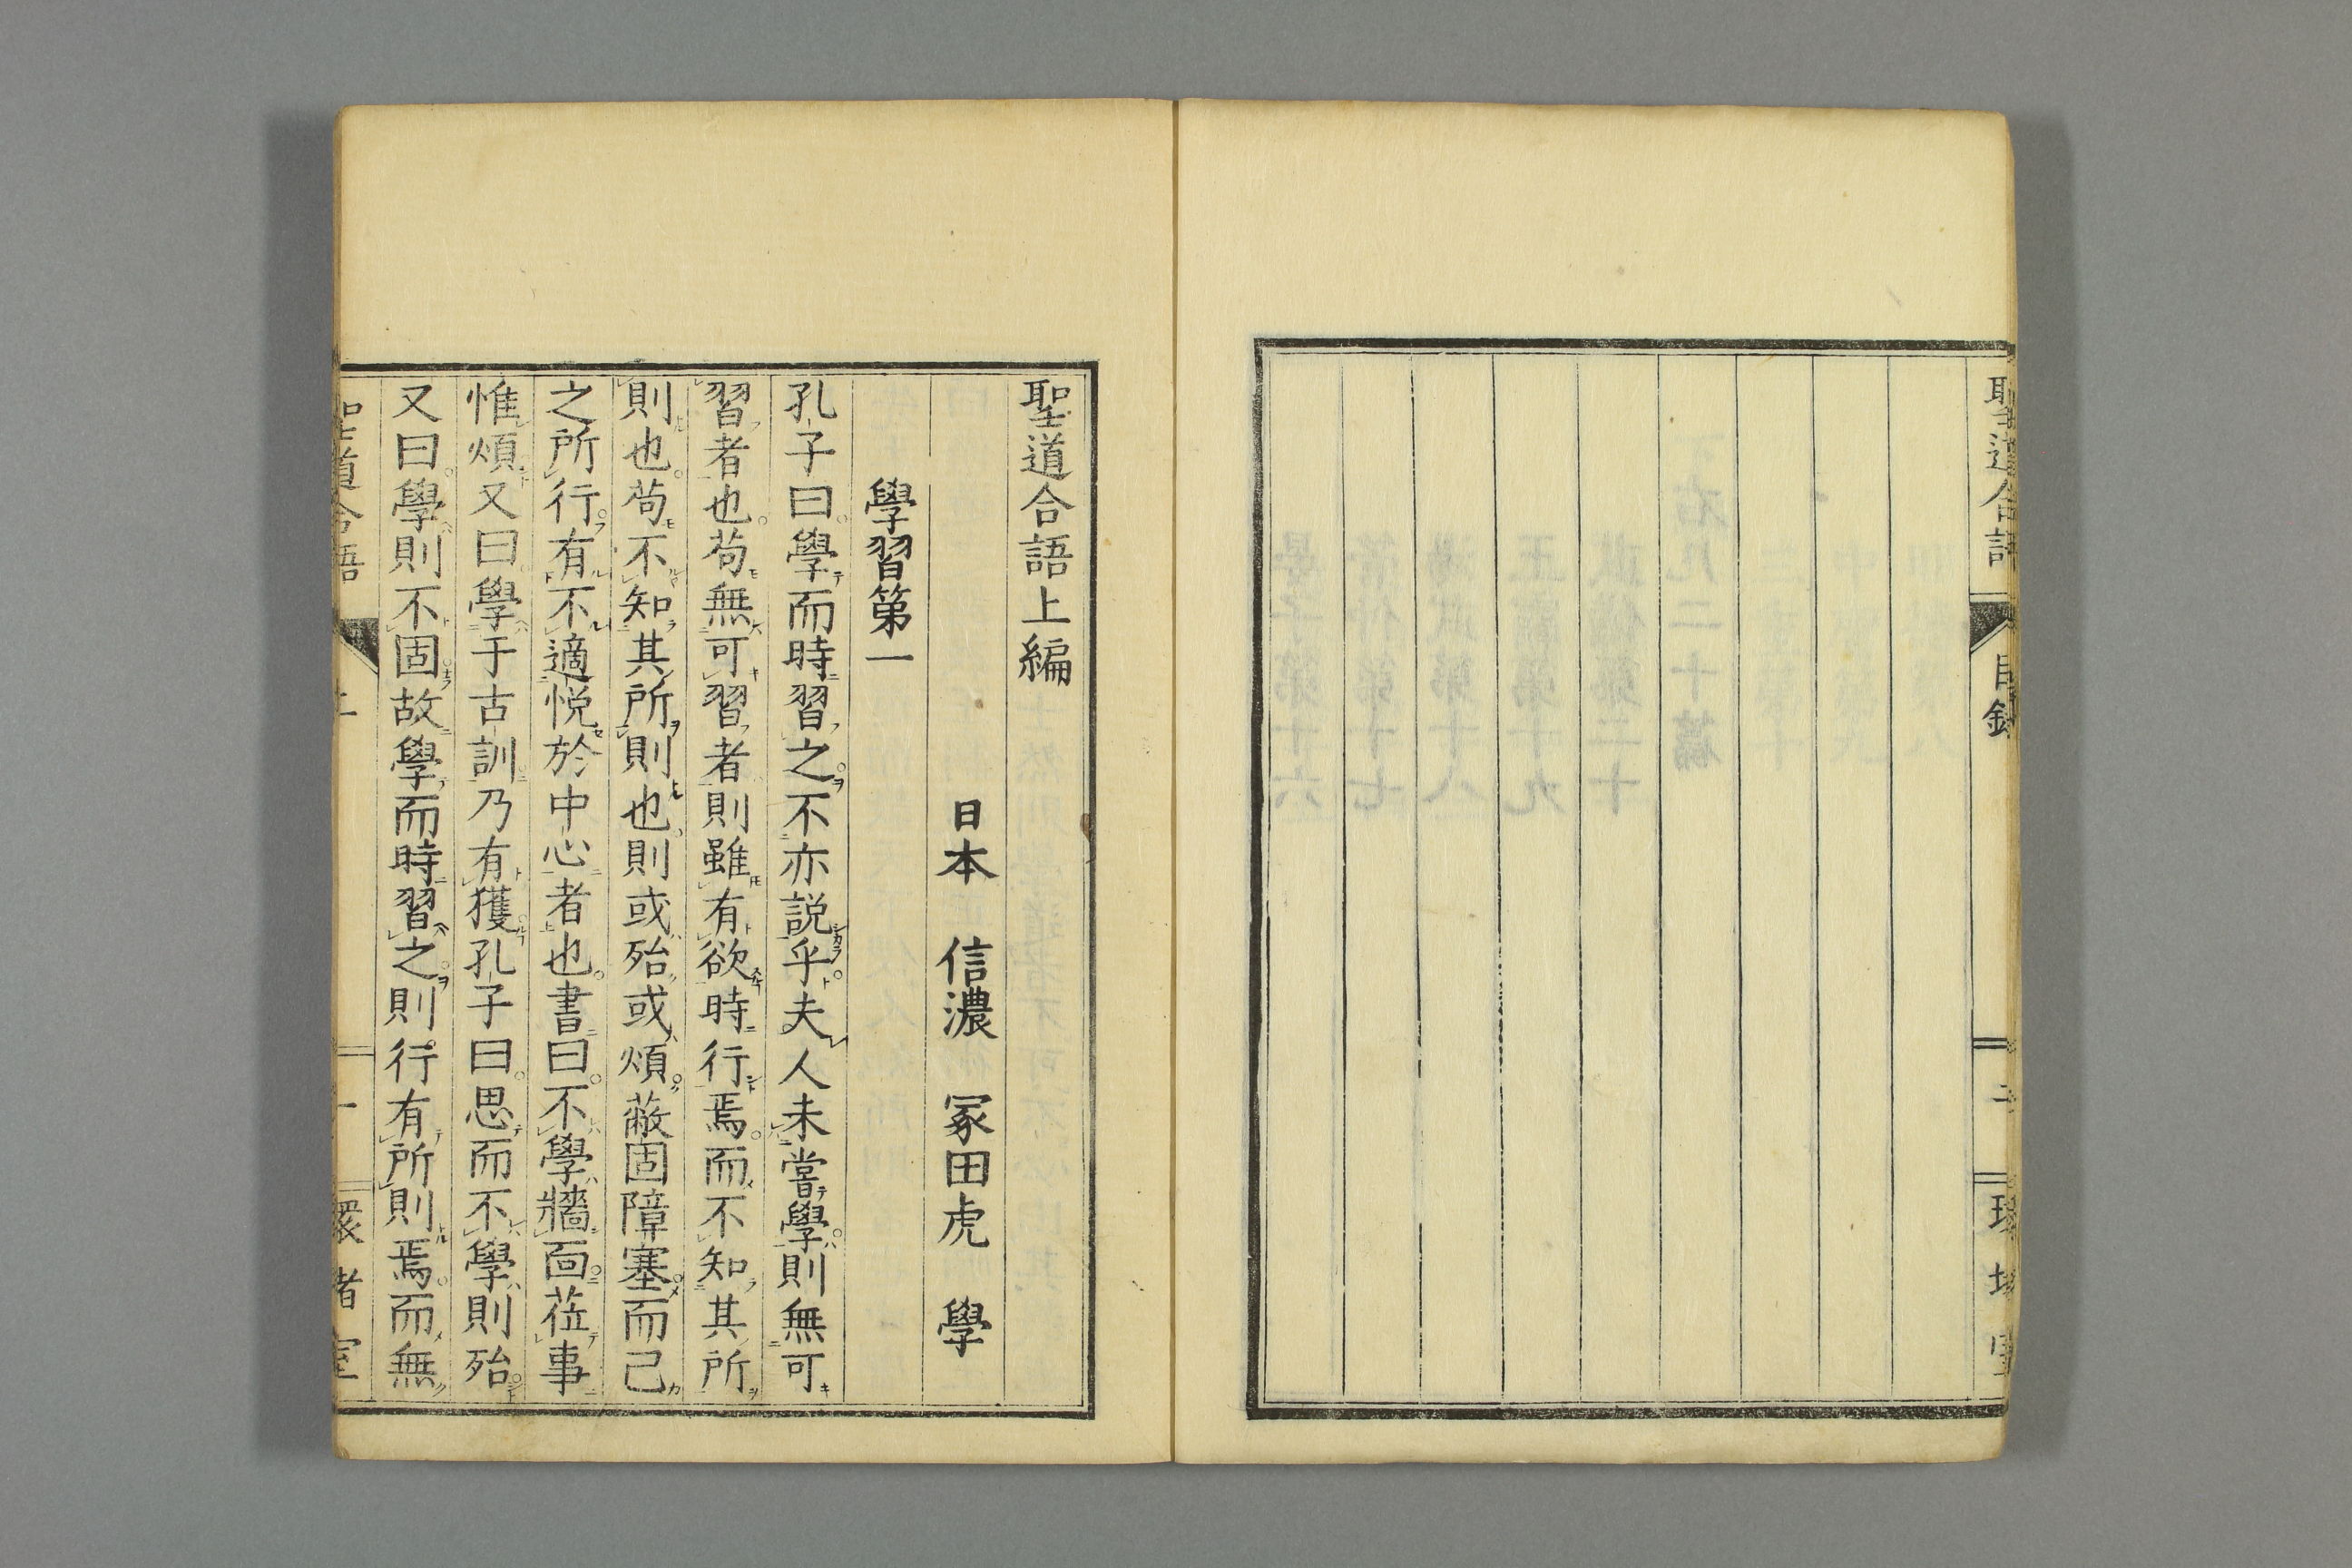 聖道合語
目録
二
環堵室
聖道合語上編
日本 信濃 冢田虎 學
學習第一
孔子曰學而時習之不亦説乎夫人未嘗學則無可
習者也苟無可習者則雖有欲時行焉而不知其所
則也苟不知其所則也則或殆或煩蔽固障塞而己
之所行有不適悦於中心者也書曰不學牆面莅事
惟煩又曰學于古訓乃有獲孔子曰思而不學則殆
又曰學則不固故學而時習之則行有所則焉而無
聖道合語
上
一
環堵室